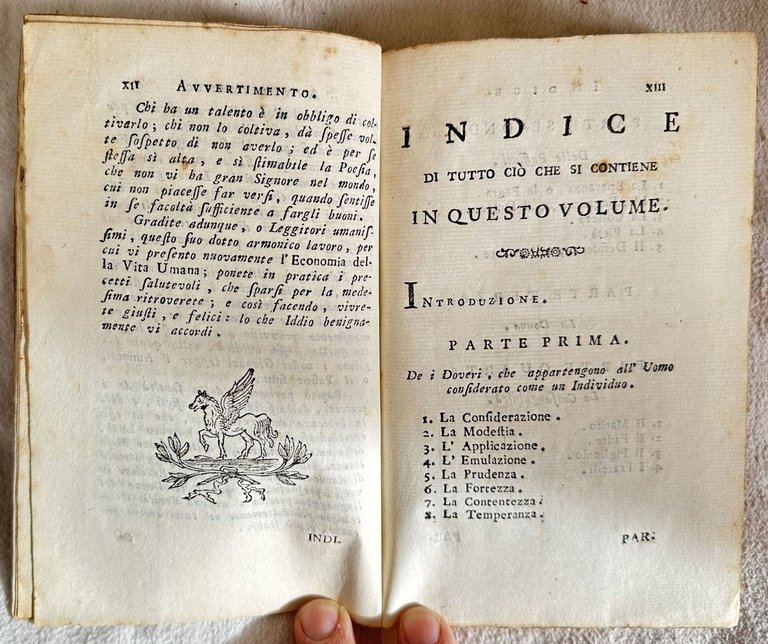 XII AVVERTIMENTO.
Chi ha un talento è in obbligo di col-
tivarlo; chi non lo coltiva, dà ſpeſſe vol-
te ſoſpetto di non averlo; ed è per ſe
ſteſſa sì alta, e sì ſtimabile la Poeſia,
che non vi ha gran Signore nel mondo,
cui non piaceſſe far verſi, quando ſentiſſe
in ſe facoltà ſufficiente a fargli buoni.
Gradite adunque, o Leggitori umaniſ-
ſimi, queſto ſuo dotto armonico lavoro, per
cui vi preſento nuovamente l'Economia del-
la Vita Umana; ponete in pratica i pre-
cetti ſalutevoli, che ſparſi per la mede-
ſima ritroverete; e così facendo, vivre-
te giuſti, e felici: lo che Iddio benigna-
mente vi accordi.
INDI.
XIII
INDICE
DI TUTTO CIÒ CHE SI CONTIENE
IN QUESTO VOLUME.
INTRODUZIONE.
PARTE PRIMA.
De i Doveri, che appartengono all' Uomo
conſiderato come un Individuo.
1. La Conſiderazione.
2. La Modeſtia.
3. L' Applicazione.
4. L' Emulazione.
5. La Prudenza.
6. La Fortezza.
7. La Contentezza.
8. La Temperanza.
PAR.